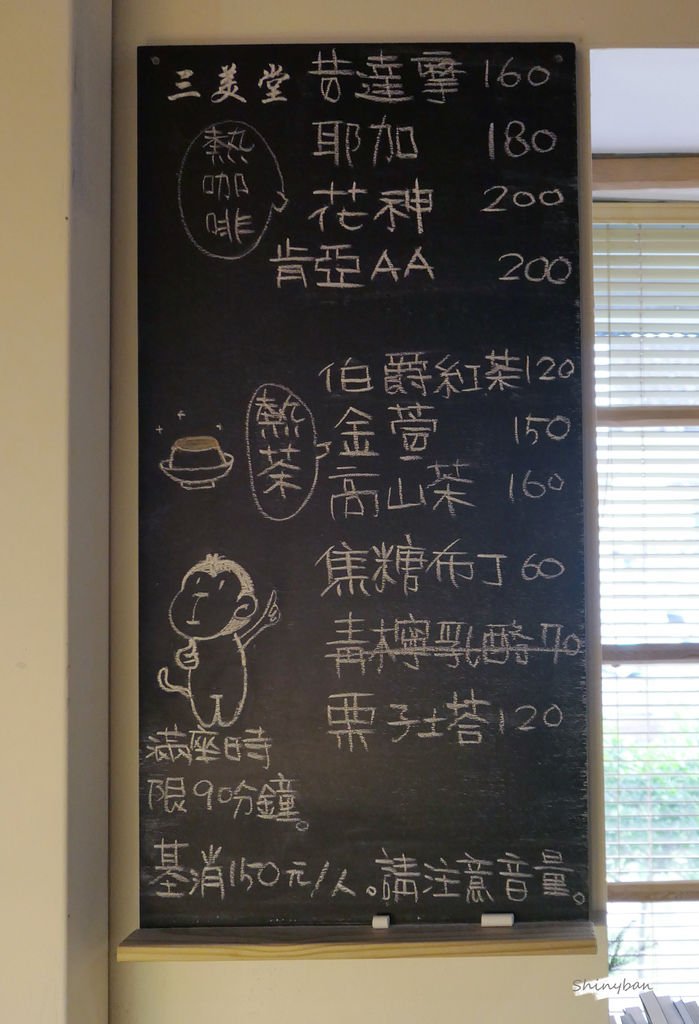 三美堂 昔達摩 160
熱咖啡
耶加 180
花神 200
肯亞AA 200
伯爵紅茶120
熱茶
金萱 150
高山茶 160
焦糖布丁 60
青檸乳酪 70
栗子塔120
滿座時
限90分鐘。
基消150元/人。請注意音量。
Shinyban